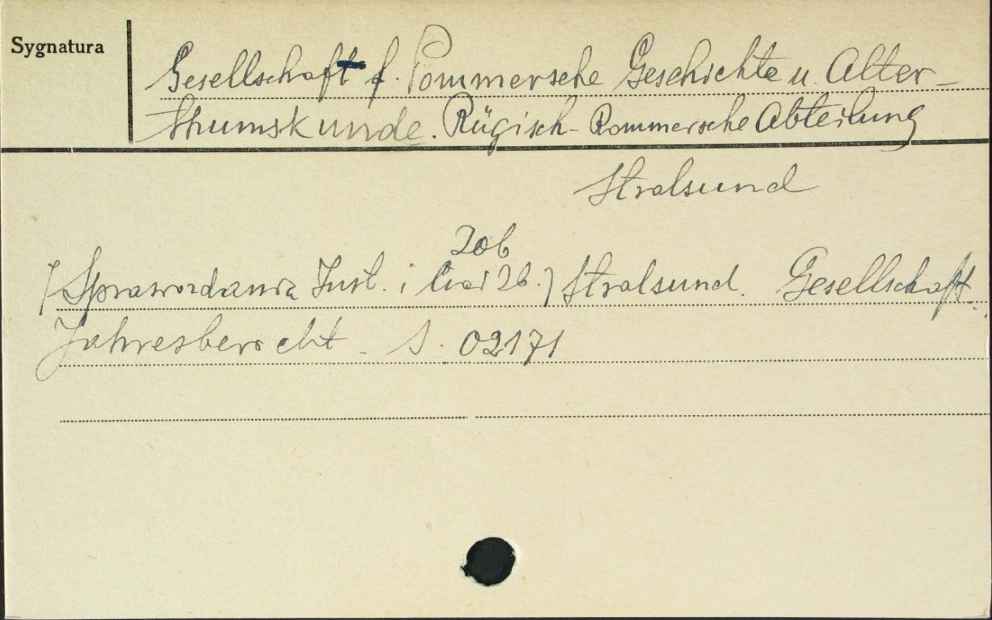 Sygnatura
Gesellschaft f. Pommersche Geschichte u. Alter-
thumskunde. Rügisch-Pommersche Abteilung
Stralsund
Zob
/Sprawozdania Inst. i 26./ Stralsund. Gesellschaft.
Jahresbericht. S. 02171